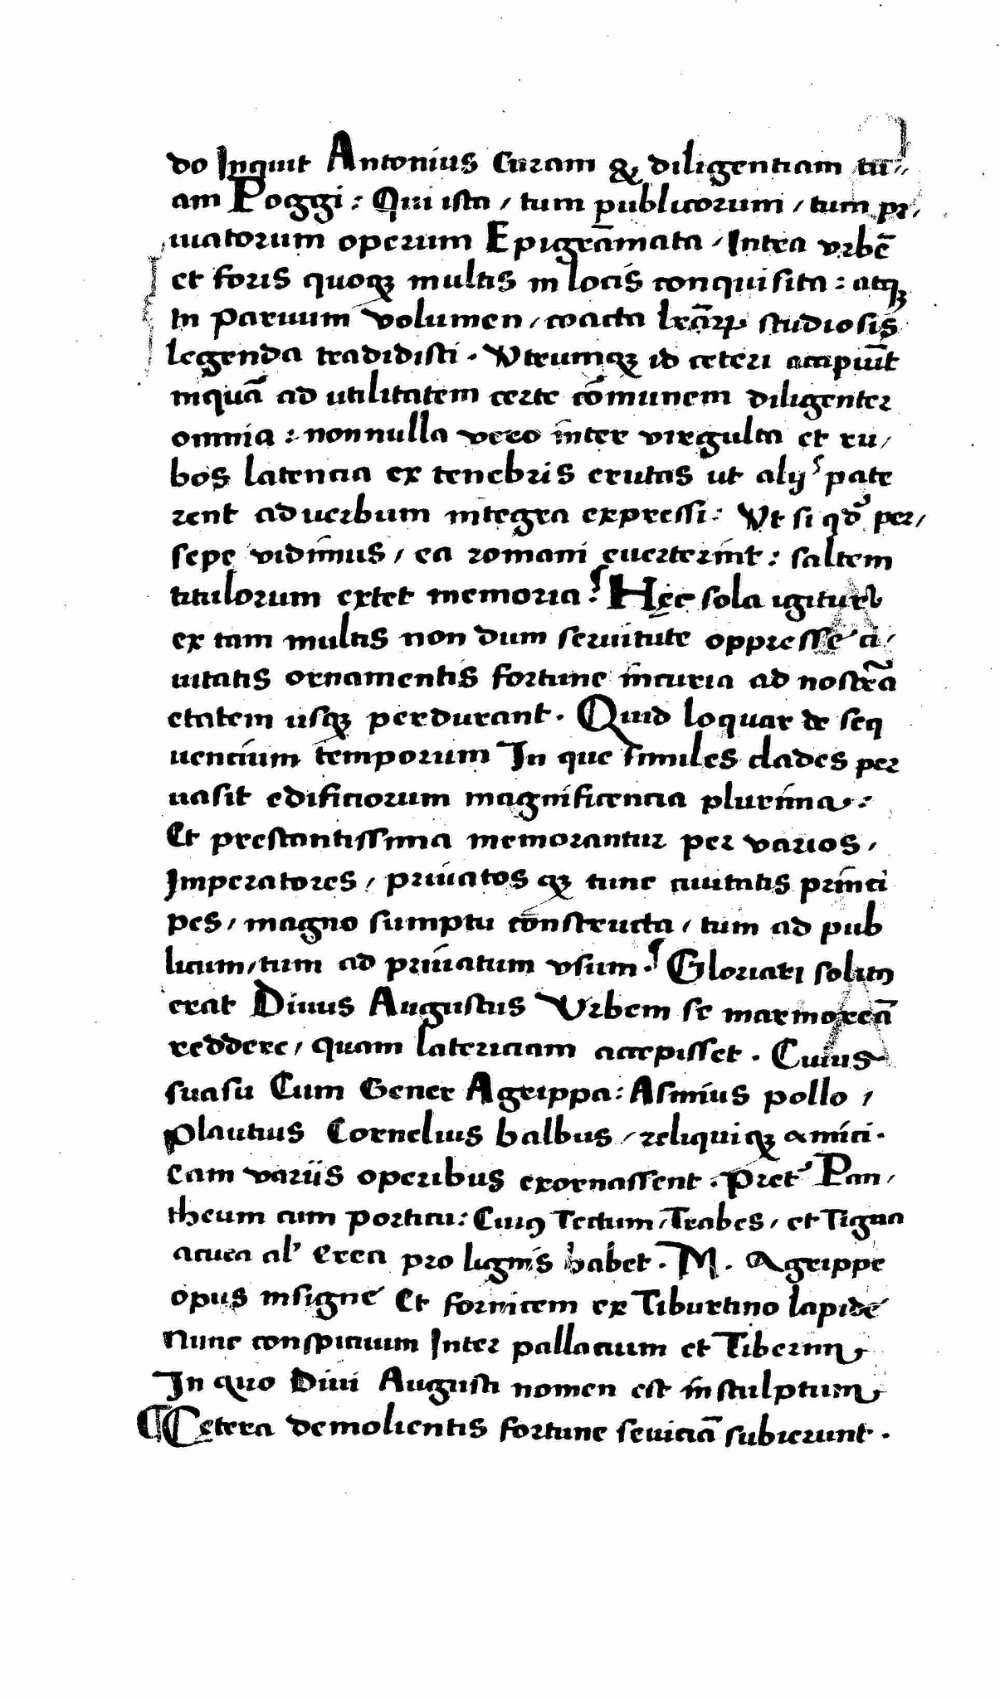 do Inquit Antonius Curam & diligentiam tu⸗
am Poggi : Qui ista / tum publicorum / tum pr/
iuatorum operum Epigrāmata / Intra vrbē
et foris quoqꝫ multis in locis conquisita : atqꝫ
In paruum volumen / coacta lrāꝝ studiosis
legenda tradidisti . Vtrumqꝫ id ceteri accipiūt
inquā ad utilitatem certe cōmunem diligenter
omnia : nonnulla vero inter virgulta et ru/
bos latencia ex tenebris erutas ut alijs pate
rent ad uerbum integra expressi : Vt si qđ per/
sepe vidimus / ea romani euerterint : saltem
titulorum extet memoria . Hęc sola igitur
ex tam multis non dum seruitute oppresse ci/
uitatis ornamentis fortune incuria ad nostrā
etatem usqꝫ perdurant . Quid loquar de seq
uencium temporum In que similes clades per
uasit edificiorum magnificencia plurima :
Et prestantissima memorantur per varios /
Imperatores / priuatos qꝫ tunc ciuitatis princi
pes / magno sumptu constructa / tum ad pub
licum / tum ad priuatum vsum . Gloriari solitꝰ
erat Diuus Augustus Vrbem se marmoreā
reddere / quam latericiam accepisset . Cuius
suasu Cum Gener Agrippa : Asinius pollo /
Plautius Cornelius balbus / reliquiqꝫ amici .
Eam variis operibus exornassent . Pret' Pan/
theum cum porticu : Cuiꝰ Tectum / Trabes / et Tigna
aurea al' Erea pro lignis habet . M . Agrippe
opus insigne Et fornicem ex Tiburtino lapide
Nunc conspicuum Inter pallacium et Tiberim
In quo Diui Augusti nomen est insculptum
¶ Cetera demolientis fortune seuiciā subierunt .